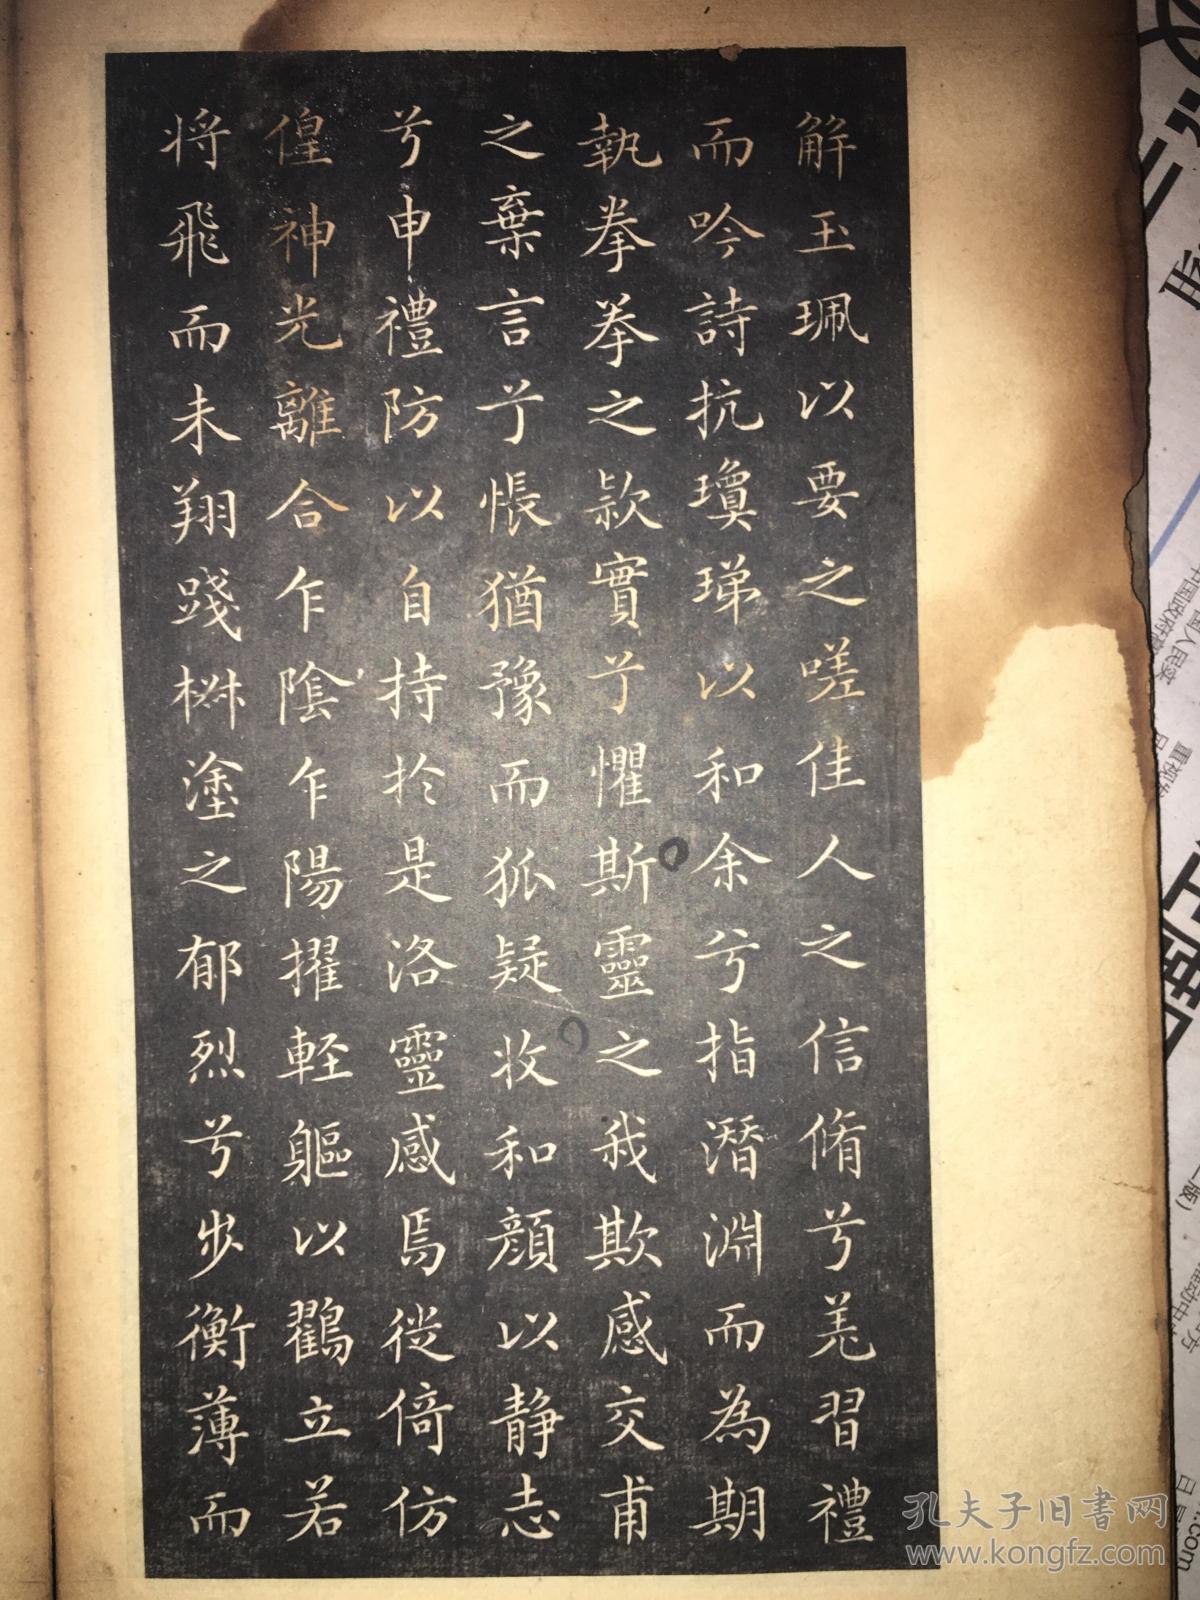 解玉珮以要之嗟佳人之信脩兮羗習禮
而吟詩抗瓊珶以和余兮指潛淵而為期
執拳拳之款實兮懼斯靈之我欺感交甫
之棄言兮悵猶豫而狐疑收和顏以静志
兮申禮防以自持於是洛靈感焉徙倚仿
偟神光離合乍陰乍陽擢軽軀以鸖立若
将飛而未翔踐椒塗之郁烈兮步衡薄而
孔夫子旧书网
www.kongfz.com